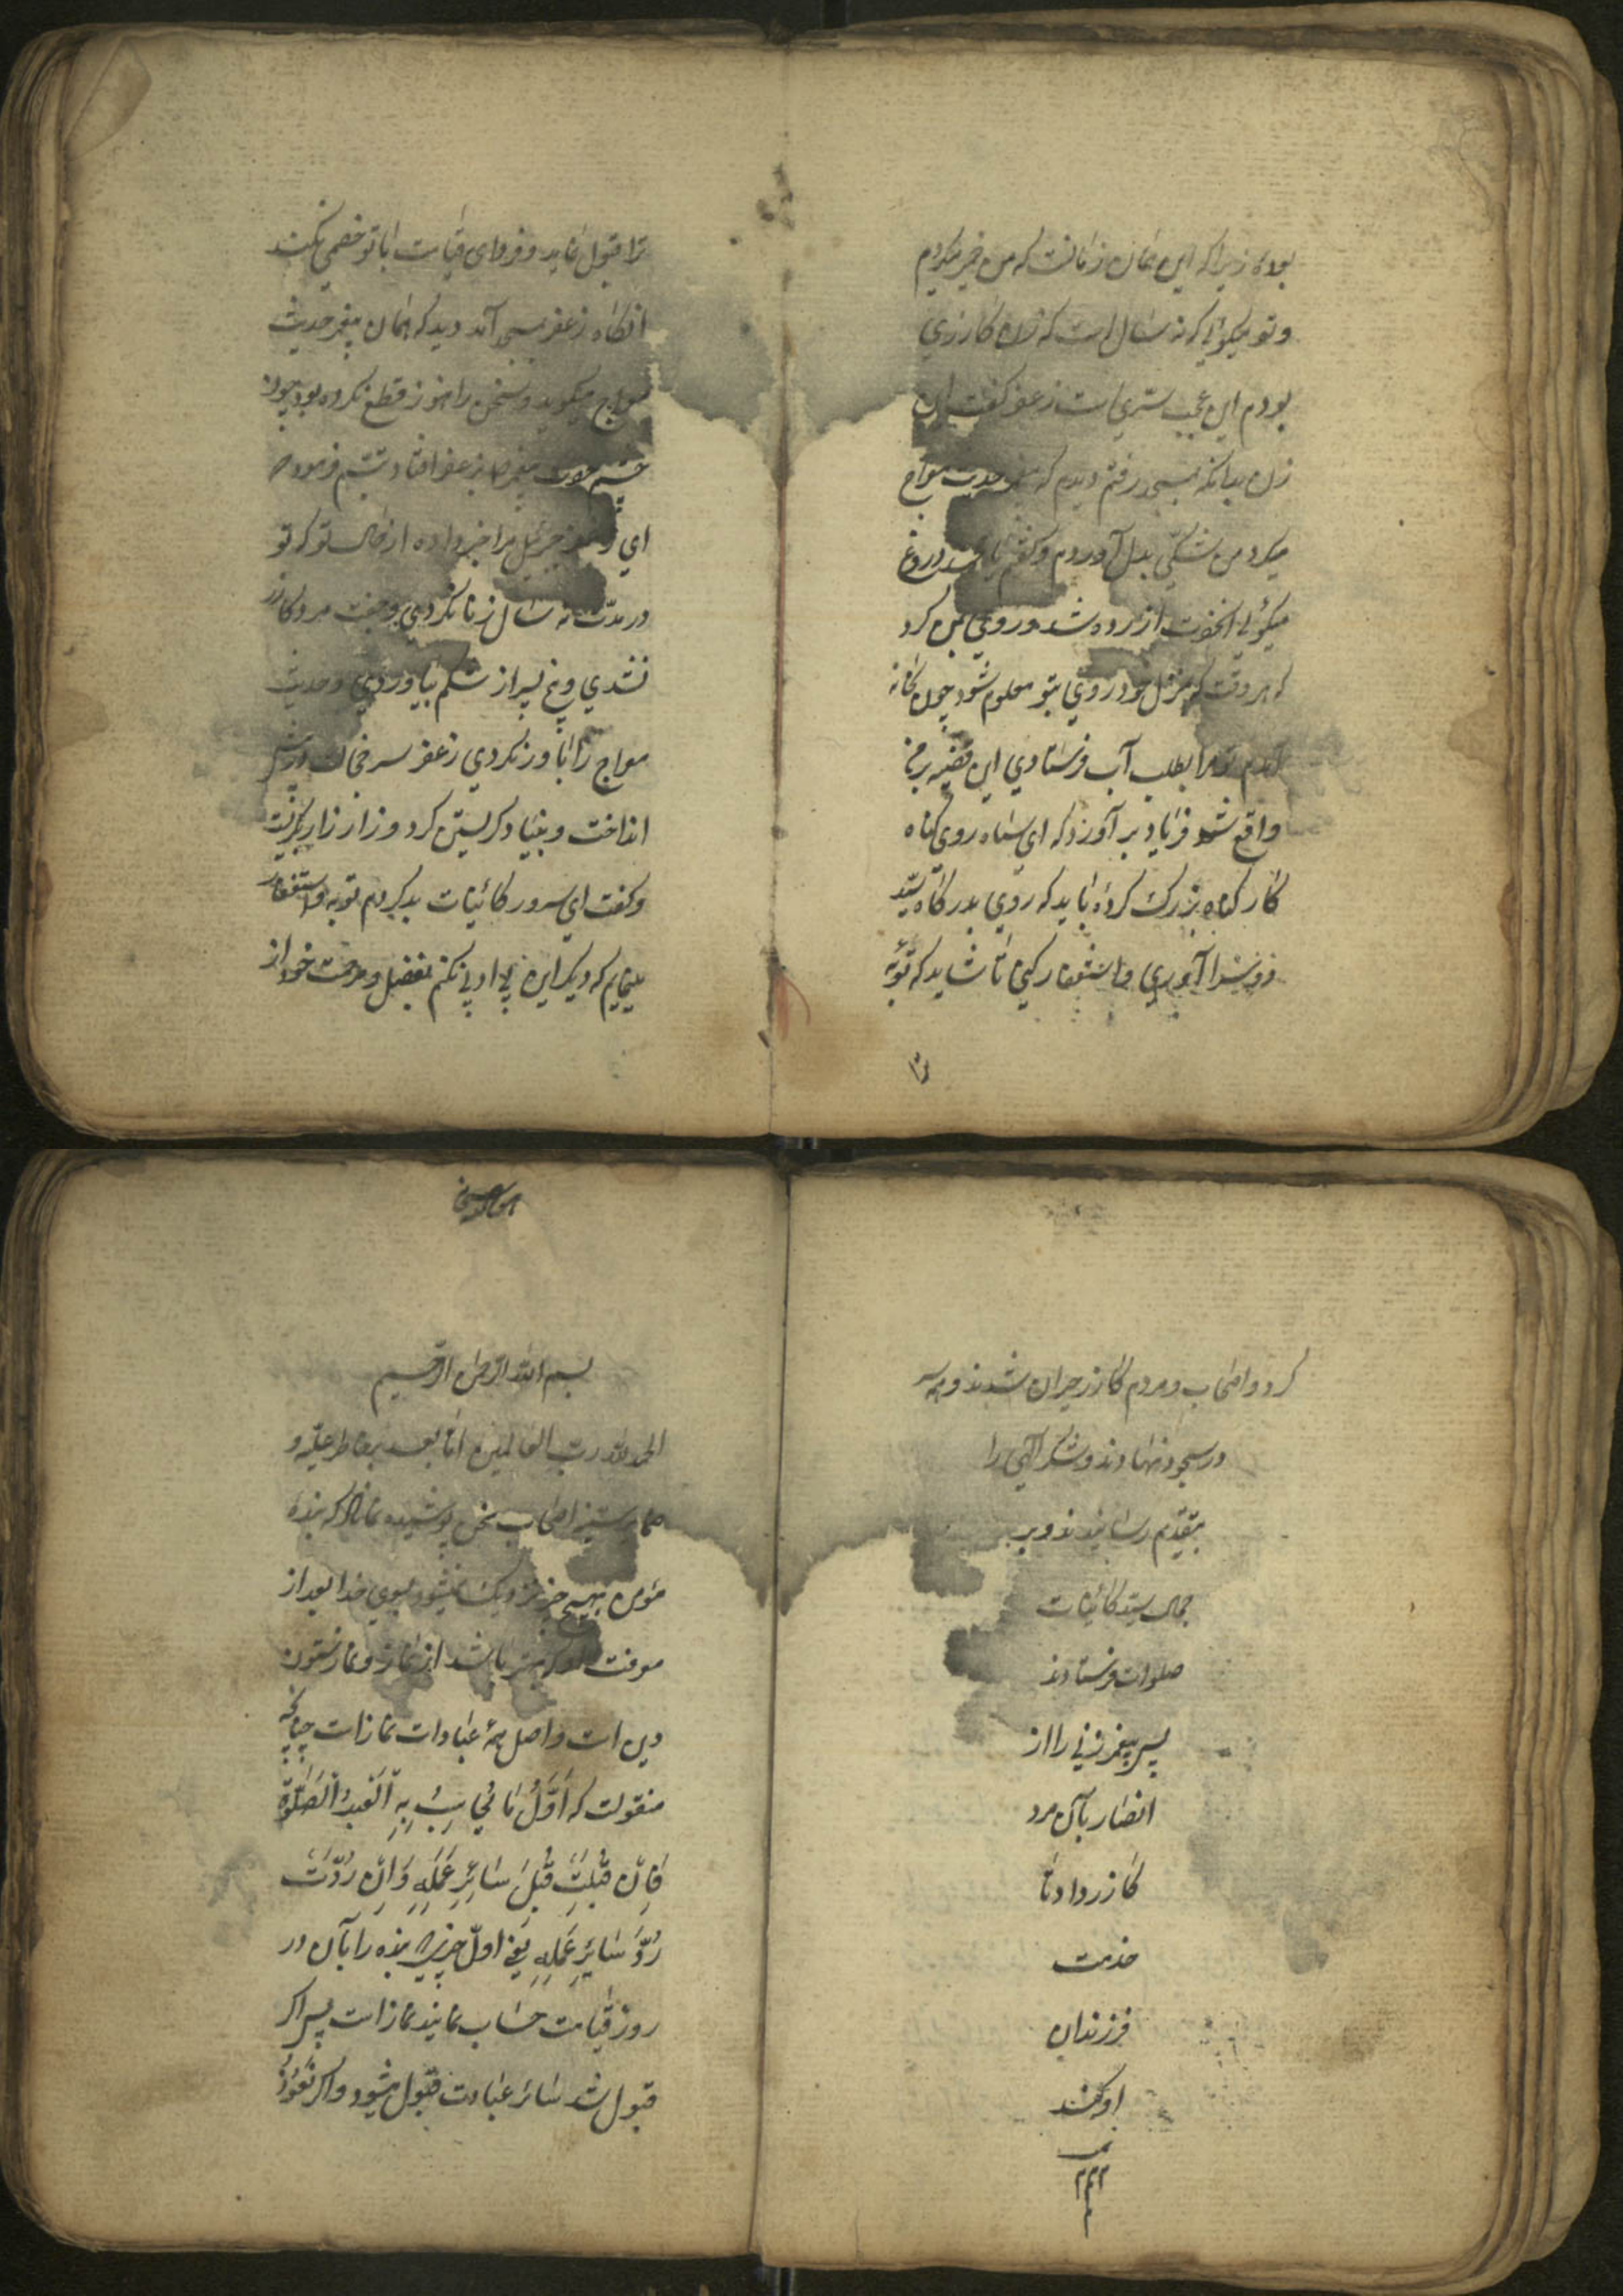 بودی زیرا که این همان زمانست که من خمیر میکردم
و تو میکوئی که نه سال است که زن کازری
بودم این عجب سریست زعفر کفت ای
زن بدانکه بمسجد رفتم دیدم که پیغمبر حدیث معراج
میکرد من شکّی بدل آوردم و کفتم یا محمد دروغ
میکوئی آنحضرت آزرده شد و روی بمن کرد
که هر وقت که بمنزل خود روی بتو معلوم شود چون بخانه
آمدم تو مرا بطلب آب فرستادی این قضیه بر من
واقع شد فریاد برآورد که ای سیاه روی کناه
کار کناه بزرک کردهٔ باید که روی بدرکاه سید
دو سرا آوری و استغفار کنی تا شاید که توبهٔ
ترا
ترا قبول نماید و فردای قیامت با تو خصمی نکند
آنکاه زعفر بمسجد آمد دید که همان پیغمبر حدیث
معراج میکوید و سخن را هنوز قطع نکرده بود چون
چشم حضرت پیغمبر بر زعفر افتاد تبسّم فرمود که
ای زعفر جبرئیل مرا خبر داده از حال تو که تو
در مدّت نه سال زنا نکردی و جفت مرد کازر
نشدی و پنج پسر از شکم نیاوردی و حدیث
معراج را باور نکردی زعفر سر خجالت در پیش
انداخت و بنیاد کریستن کرد و زار زار بکریست
و کفت ای سرور کائنات بد کردم توبه و استغفار
مینمایم که دیکر این بی ادبی نکنم بفضل و مرحمت خود از
کرد و اصحاب و مردم کازر حیران شدند و همه
در سجود نهادند و شکر الهی را
بتقدیم رسانیدند و بر
جمال سید کائنات
صلوات فرستادند
پس پیغمبر زنی را از
انصار بآن مرد
کازر داد تا
خدمت
فرزندان
او کند
بسم الله الرحمن الرحیم
الحمد لله ربّ العالمین امّا بعد بر خاطر علیّه و
ضمایر سنیّه اصحاب سخن پوشیده نماناد که بندهٔ
مؤمن بهیچ چیز نزدیک نمیشود بسوی خدا بعد از
معرفت که بهتر باشد از نماز و نماز ستون
دین است و اصل همهٔ عبادات نماز است چنانچه
منقولست که اَوَّلُ ما یُحاسَبُ بِهِ اَلْعَبْدُ اَلصَّلوٰةُ
فَاِنْ قُبِلَتْ قُبِلَ سائِرُ عَمَلِهِ وَ اِنْ رُدَّتْ
رُدَّ سائِرُ عَمَلِهِ یعنی اوّل چیزی که بنده را بآن در
روز قیامت حساب نمایند نماز است پس اکر
قبول شد سائر عبادت قبول میشود و اکر نَعُوذُ